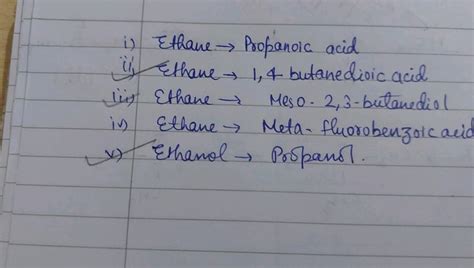 i) Ethane → Propanoic acid
ii) Ethane → 1,4-butanedioic acid
iii) Ethane → Meso-2,3-butanediol
iv) Ethane → Meta-fluorobenzoic acid
v) Ethanol → Propanol.